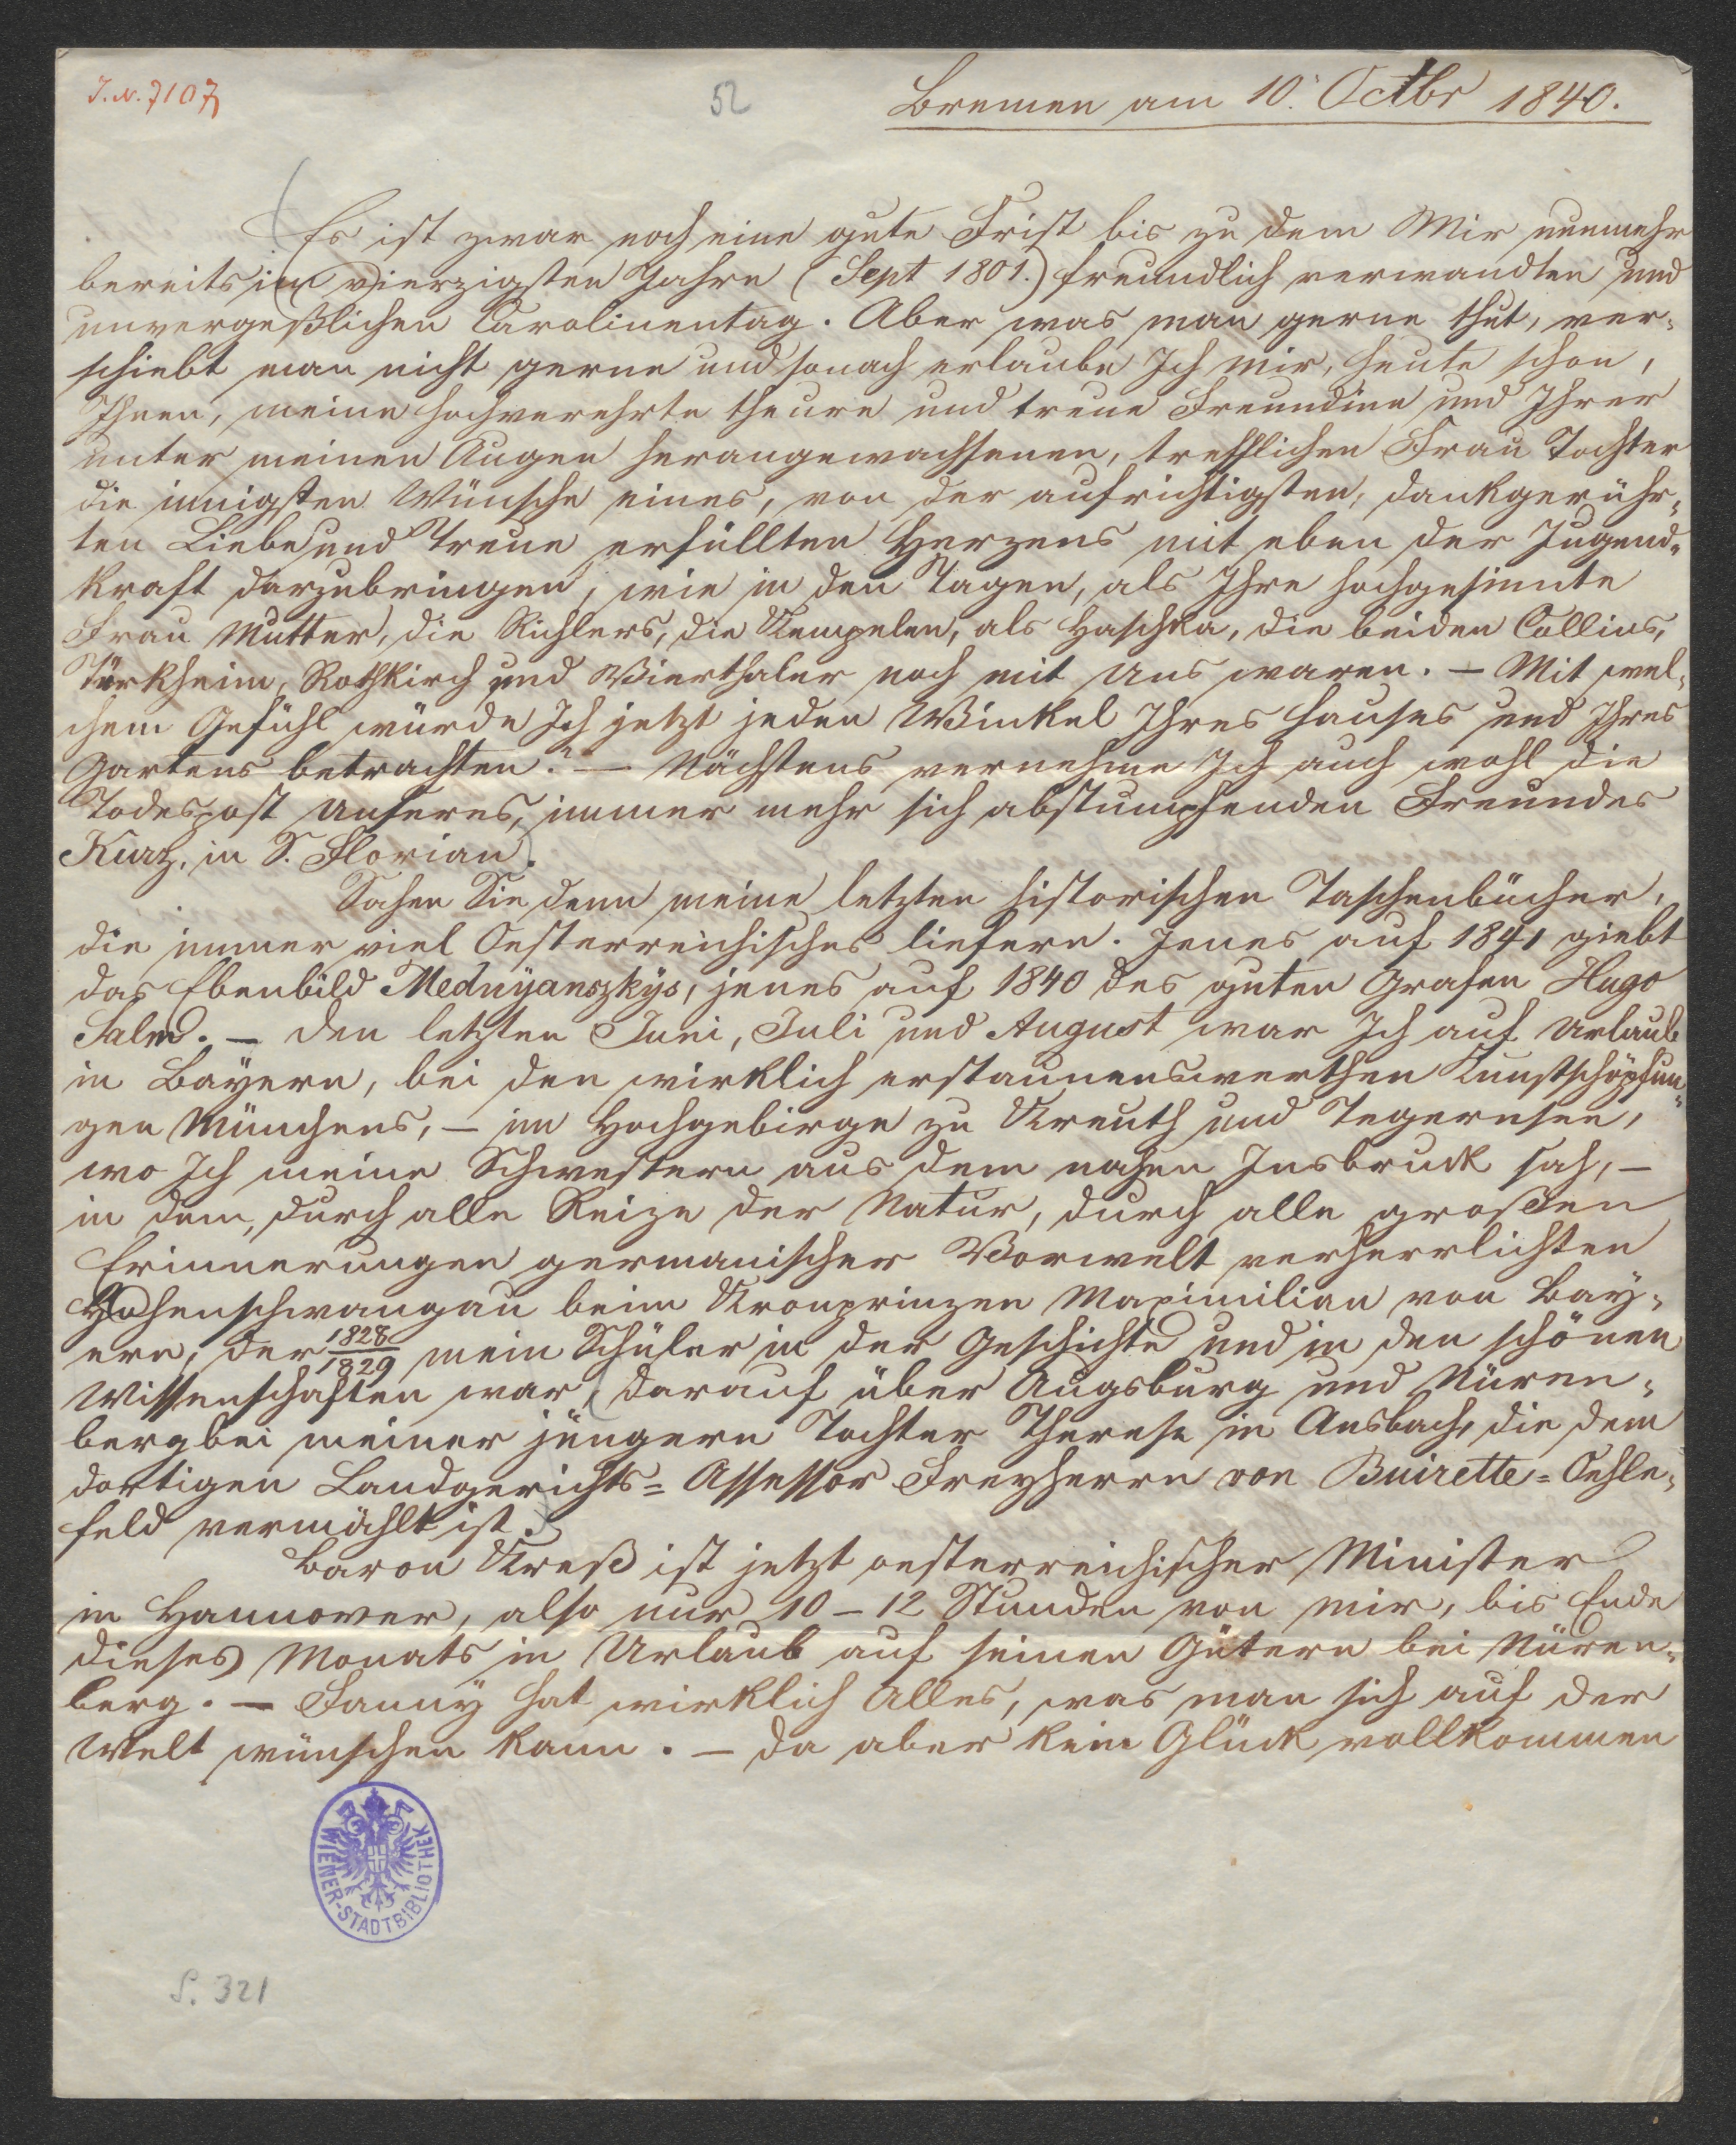 J. N. 7107
52
Bremen am 10. Octbr 1840.
Es ist zwar noch eine gute Frist bis zu dem Mir nunmehr
bereits im vierzigsten Jahre (Sept 1801.) freundlich verwandten und
unvergeßlichen Carolinentag. Aber was man gerne thut, ver-
schiebt man nicht gerne und sonach erlaube Ich mir, heute schon,
Ihnen, meine hochverehrte theure und treue Freundinn und Ihrer
unter meinen Augen herangewachsenen, trefflichen Frau Tochter
die innigsten Wünsche eines, von der aufrichtigsten, dankgerühr-
ten Liebe und Treue erfüllten Herzens mit eben der Jugend-
kraft darzubringen, wie in den Tagen, als Ihre hochgesinnte
Frau Mutter, die Richlers, die Kempelen, als Haschka, die beiden Collins,
Türkheim, Rothkirch und Vierthaler noch mit uns waren. – Mit wel-
chem Gefühl würde Ich jetzt jeden Winkel Ihres Hauses und Ihres
Gartens betrachten? – Nächstens vernehme Ich auch wohl die
Todespost unseres, immer mehr sich abstumpfenden Freundes
Kurz, in S. Florian.
Sahen Sie denn meine letzten historischen Taschenbücher,
die immer viel Oesterreichisches liefern. Jenes auf 1841 giebt
das Ebenbild Mednyanszkys, jenes auf 1840 des guten Grafen Hugo
Salm. – Den letzten Juni, Juli und August war Ich auf Urlaub
in Bayern, bei den wirklich erstaunenswerthen Kunstschöpfun-
gen Münchens, – im Hochgebirge zu Kreuth und Tegernsee,
wo Ich meine Schwestern aus dem nahen Insbruck sah, –
in dem, durch alle Reize der Natur, durch alle großen
Erinnerungen germanischer Vorwelt verherrlichten
Hohenschwangau beim Kronprinzen Maximilian von Bay-
ern, der 1828/1829 mein Schüler in der Geschichte und in den schönen
Wissenschaften war, darauf über Augsburg und Nüren-
berg bei meiner jüngern Tochter Therese in Ansbach, die dem
dortigen Landgerichts-Assessor Freyherrn von Buirette-Oehle-
feld vermählt ist.
Baron Kreß ist jetzt oesterreichischer Minister
in Hannover, also nur 10–12 Stunden von mir, bis Ende
dieses Monats in Urlaub auf seinen Gütern bei Nüren-
berg. – Fanny hat wirklich Alles, was man sich auf der
Welt wünschen kann. – Da aber kein Glück vollkommen
WIENER-STADTBIBLIOTHEK
S. 321